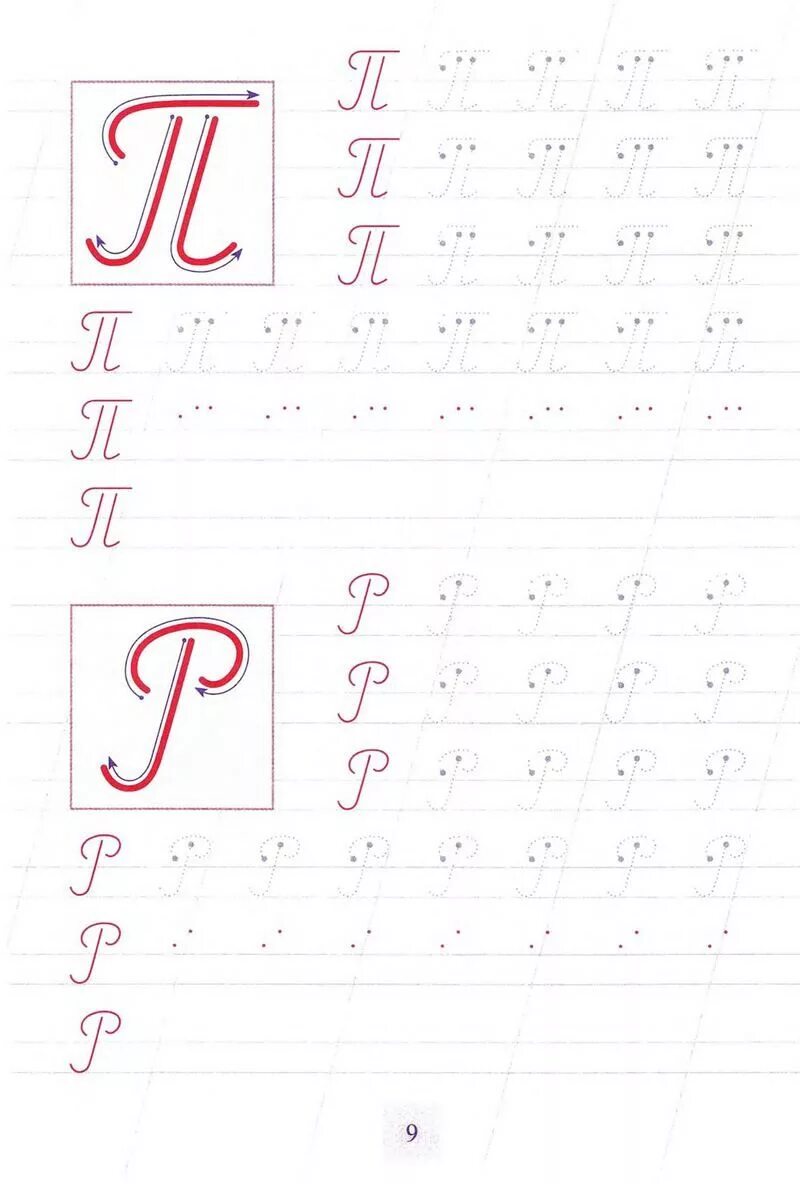 П
П П П П П
П П П П П
П П П П П
П П П П П П П П
П
П
Р
Р Р Р Р Р
Р Р Р Р Р
Р Р Р Р Р
Р Р Р Р Р Р Р Р
Р
Р
9